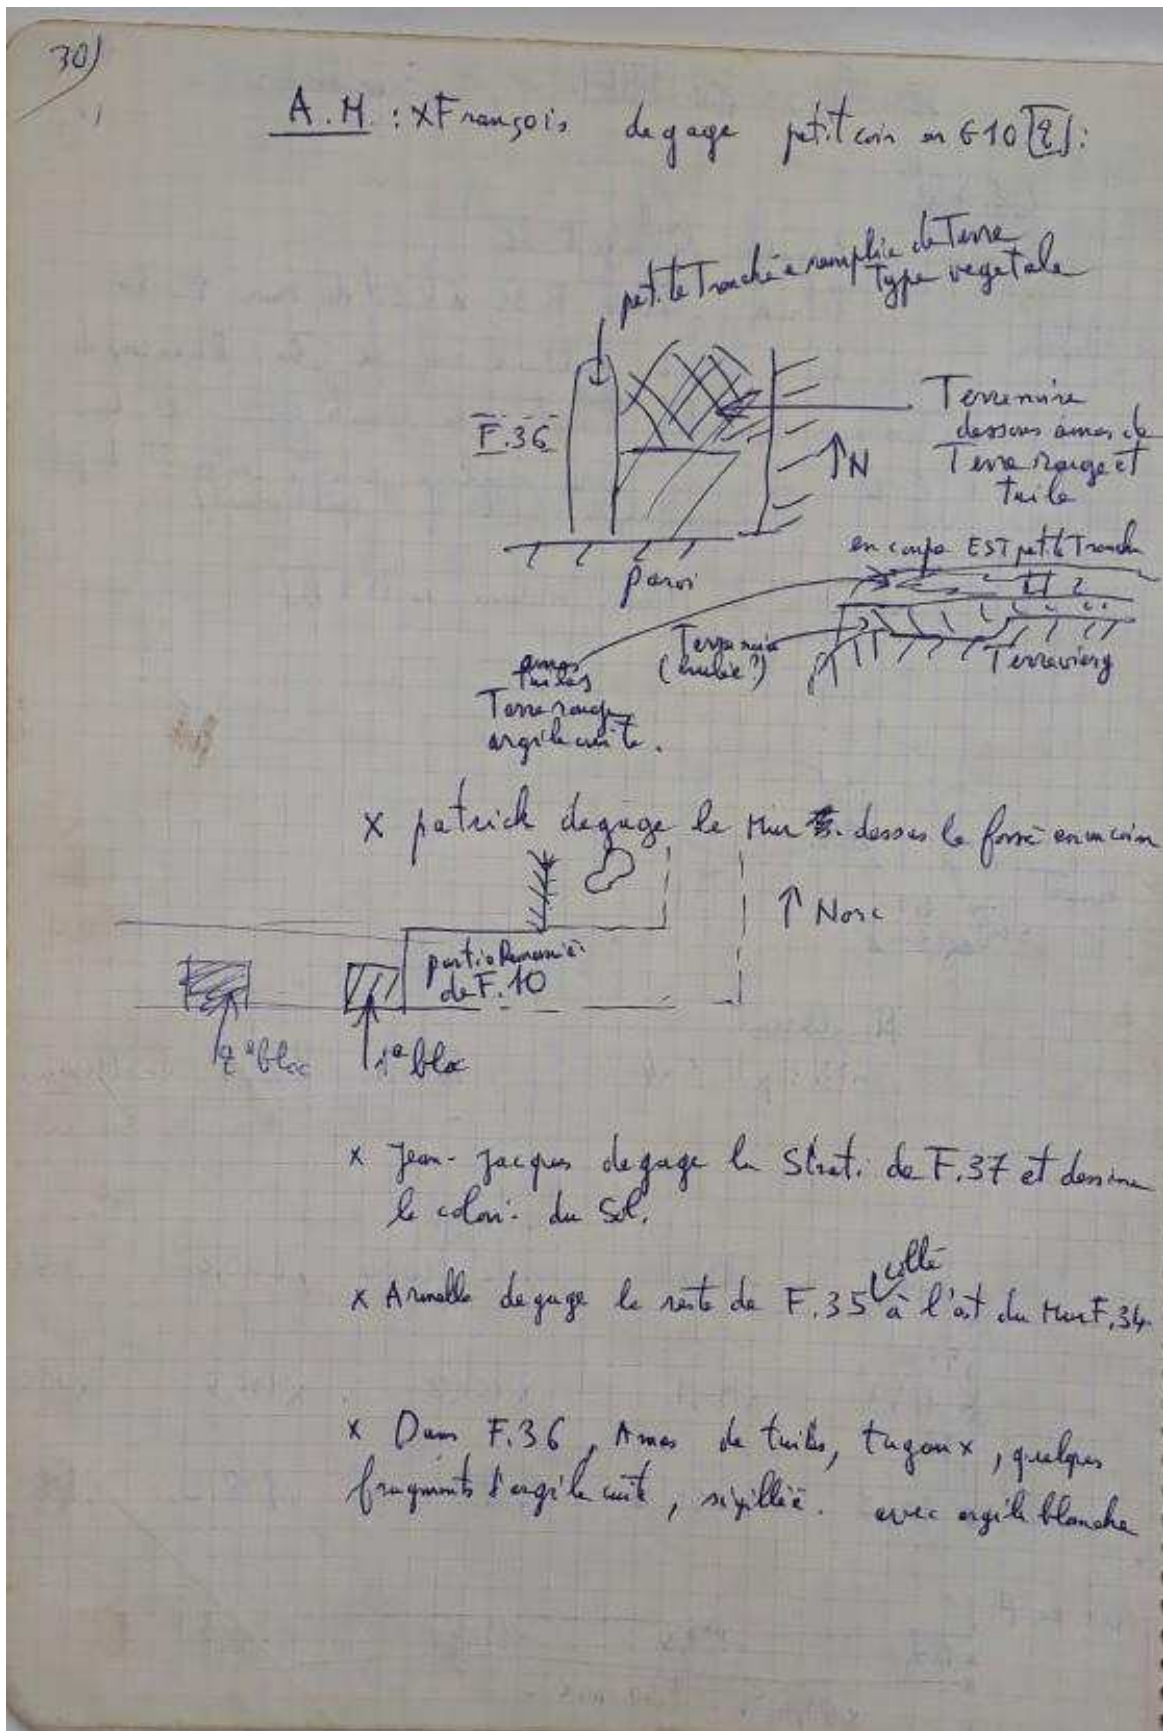 30)
A.M. : x François degage petit coin en G10 [2]:
petite Tranchée remplie de Terre
Type vegetale
F.36
Terre noire
dessous amas de
Terre rouge et
tuile
↑N
paroi
en coupe EST petite Tranchée
Terre noire
(brulée?)
Terre vierg
amas
tuiles
Terre rouge
argile cuite.
x patrick degage le Mur dessus le fossé en un coin
↑ Nord
partie Remaniée
de F.10
2e bloc
1e bloc
x Jean-Jacques degage la Strat. de F.37 et dessine
le colori. du Sol.
collé
x Armelle degage le reste de F.35 à l'est du Mur F.34
x Dans F.36, Amas de tuiles, tugoux, quelques
fragments d'argile cuite, sigillée. avec argile blanche